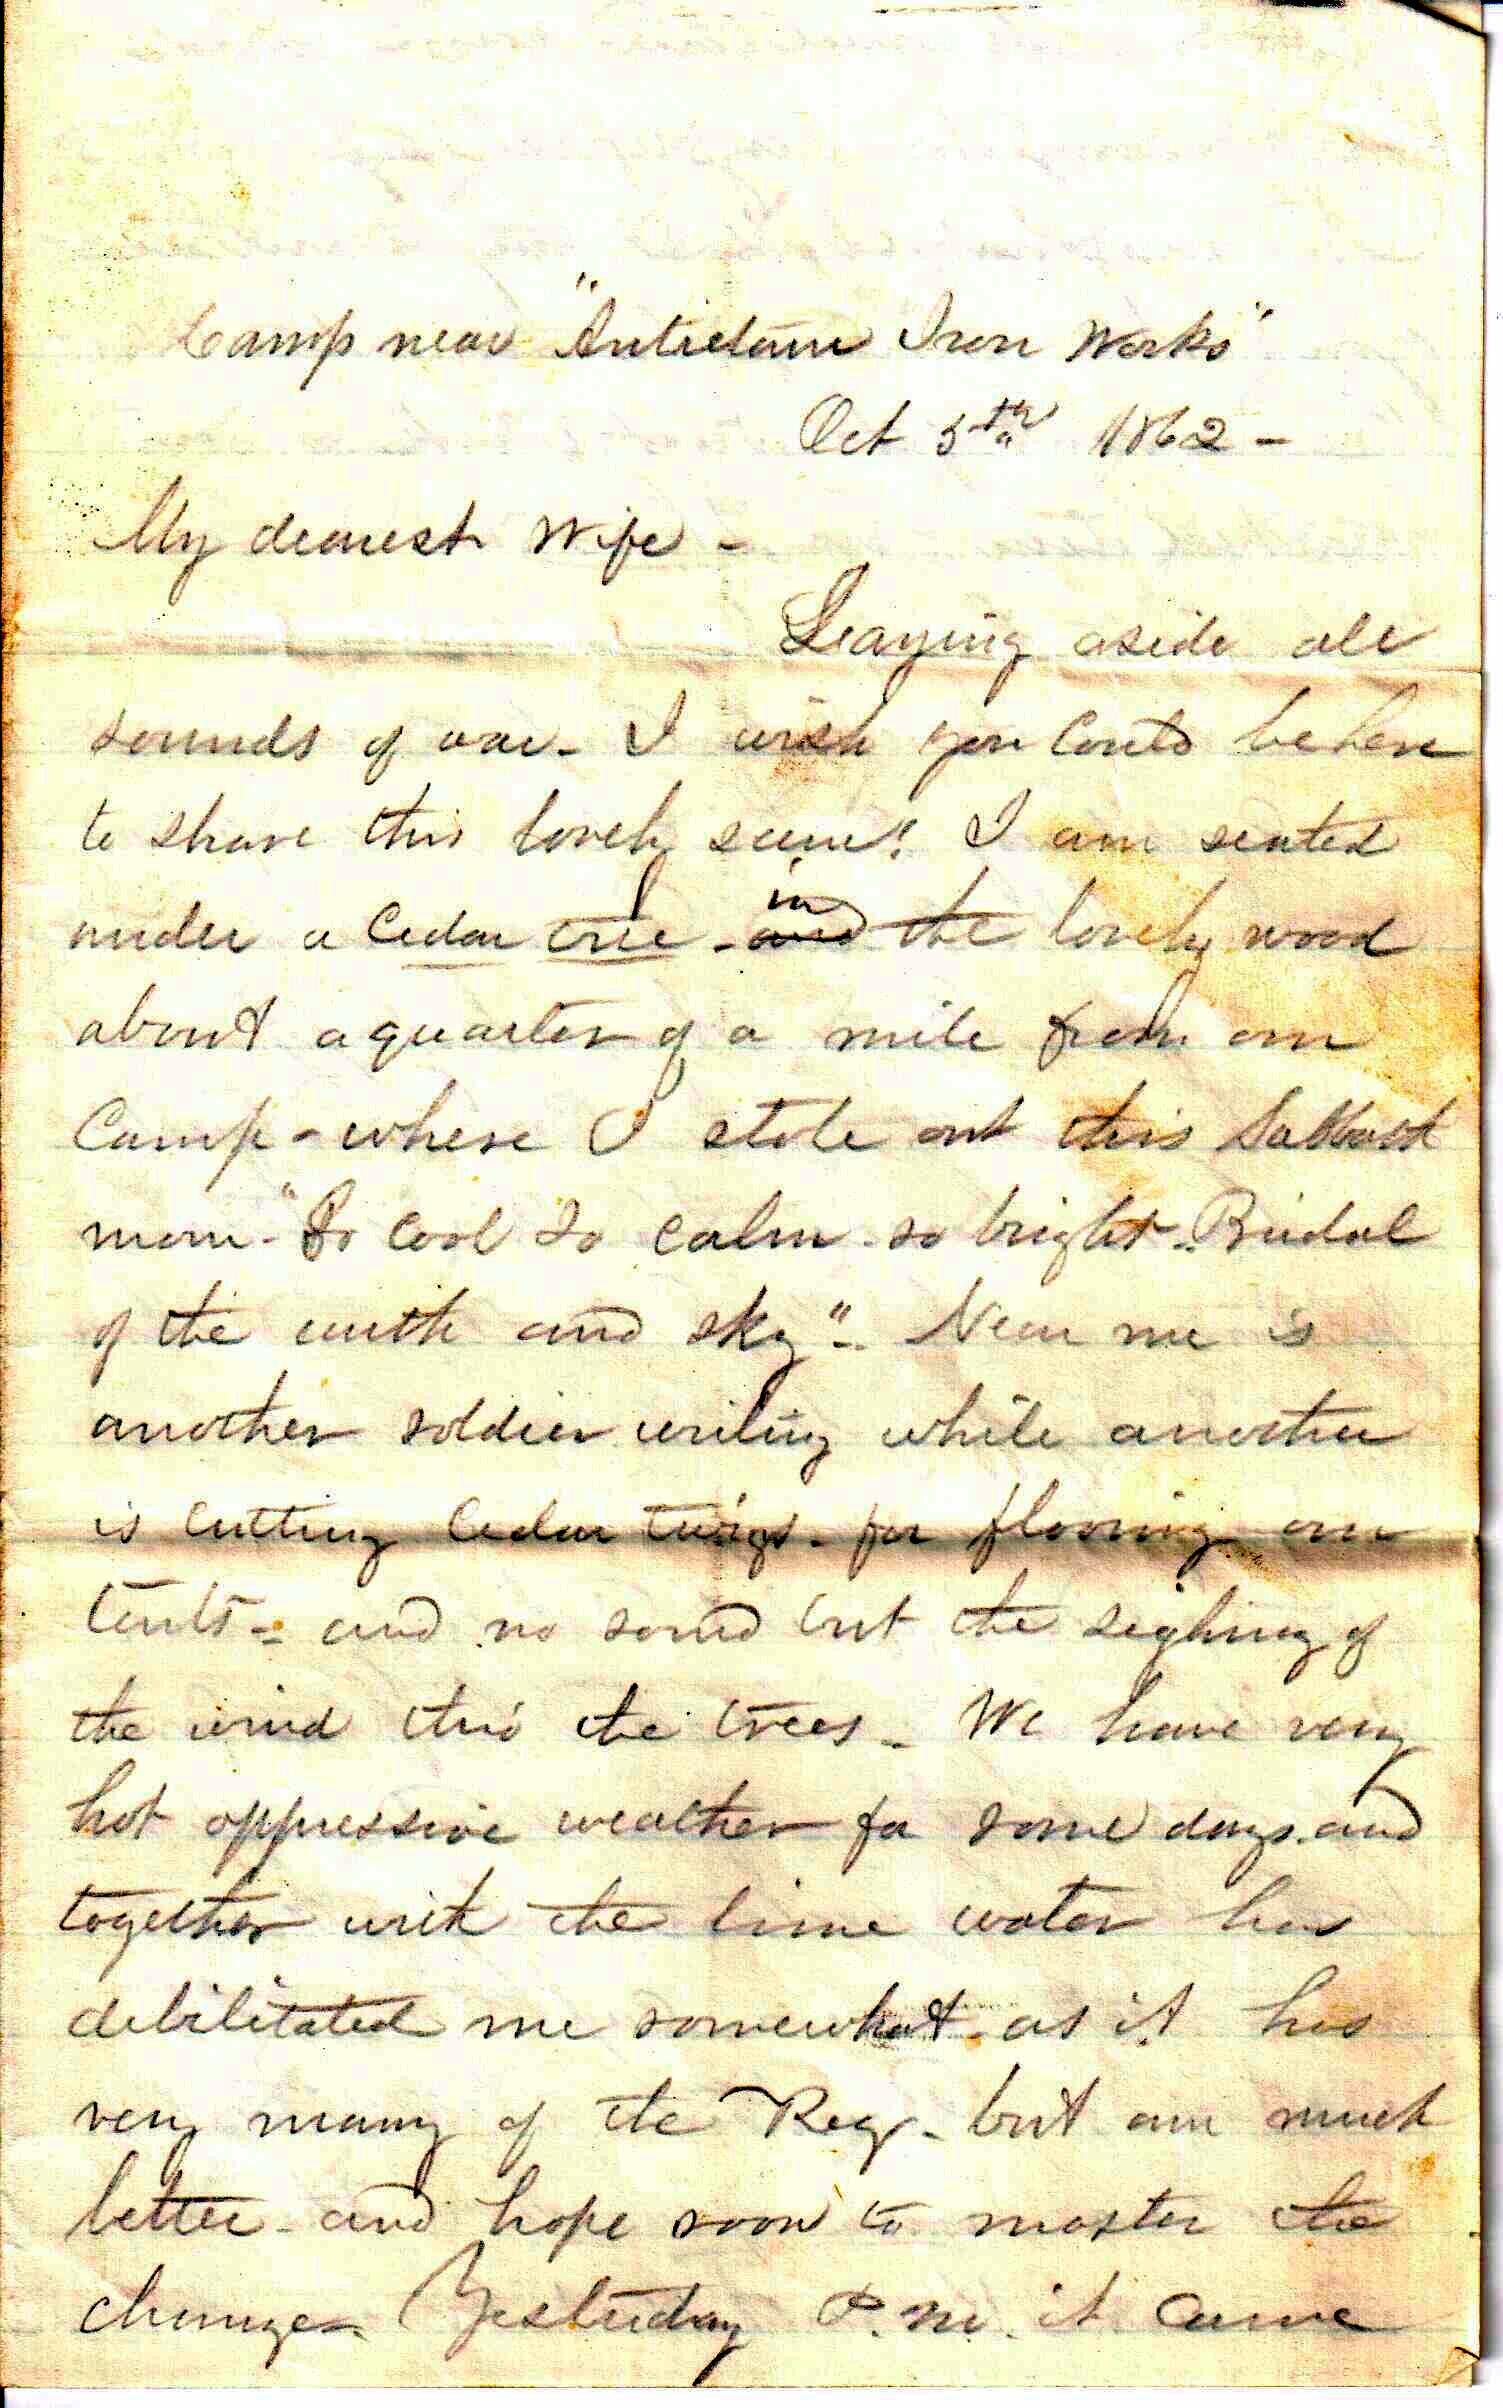 Camp near "Antietam Iron Works"
Oct 5th 1862 -
My dearest Wife -
Leaying aside all
sounds of war - I wish you could be here
to share this lovely scene! I am seated
under a Cedar tree - in the lovely wood
about a quarter of a mile from our
Camp - where I stole out this Sabbath
morn - "So cool so calm - so bright - Bridal
of the earth and sky" - Near me is
another soldier writing while another
is cutting Cedar twigs - for flooring our
tents - and no sound but the sighing of
the wind thro' the trees - We have very
hot oppressive weather for some days - and
together with the lime water has
debilitated me somewhat - as it has
very many of the Reg - but am much
better - and hope soon to master the
change - Yesterday P.M. it came